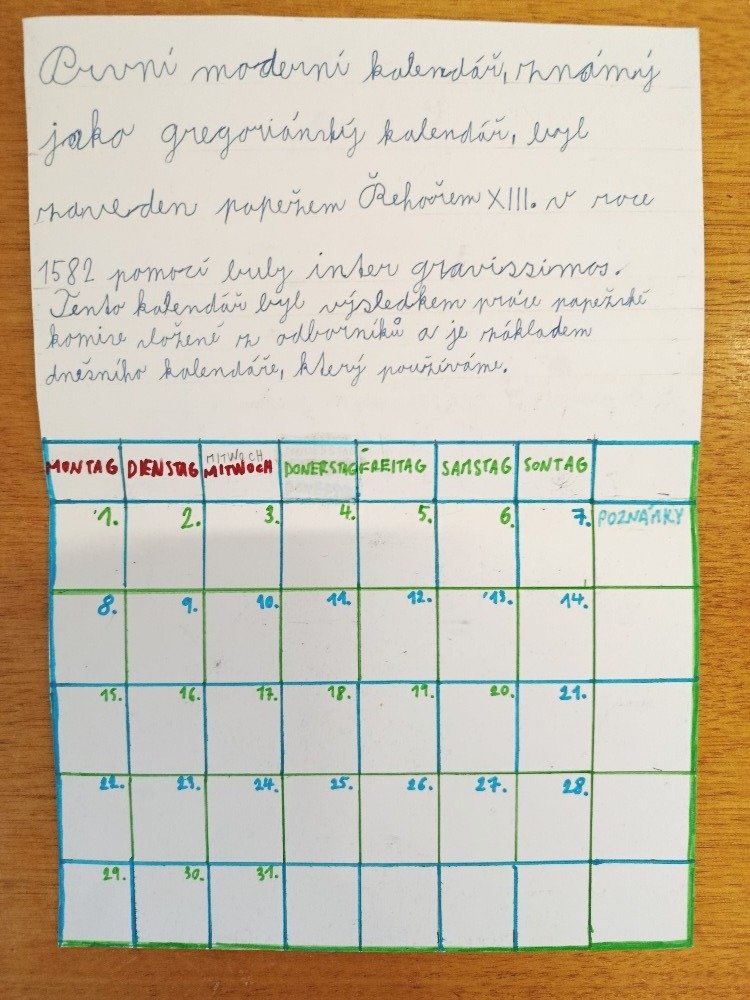 První moderní kalendář, známý
jako gregoriánský kalendář, byl
zaveden papežem Řehořem XIII. v roce
1582 pomocí buly inter gravissimos.
Tento kalendář byl výsledkem práce papežské
komise složené z odborníků a je základem
dnešního kalendáře, který používáme.
MITWOCH
MONTAG DIENSTAG MITWOCH DONERSTAG FREITAG SAMSTAG SONTAG
1. 2. 3. 4. 5. 6. 7. POZNÁMKY
8. 9. 10. 11. 12. 13. 14.
15. 16. 17. 18. 19. 20. 21.
22. 23. 24. 25. 26. 27. 28.
29. 30. 31.